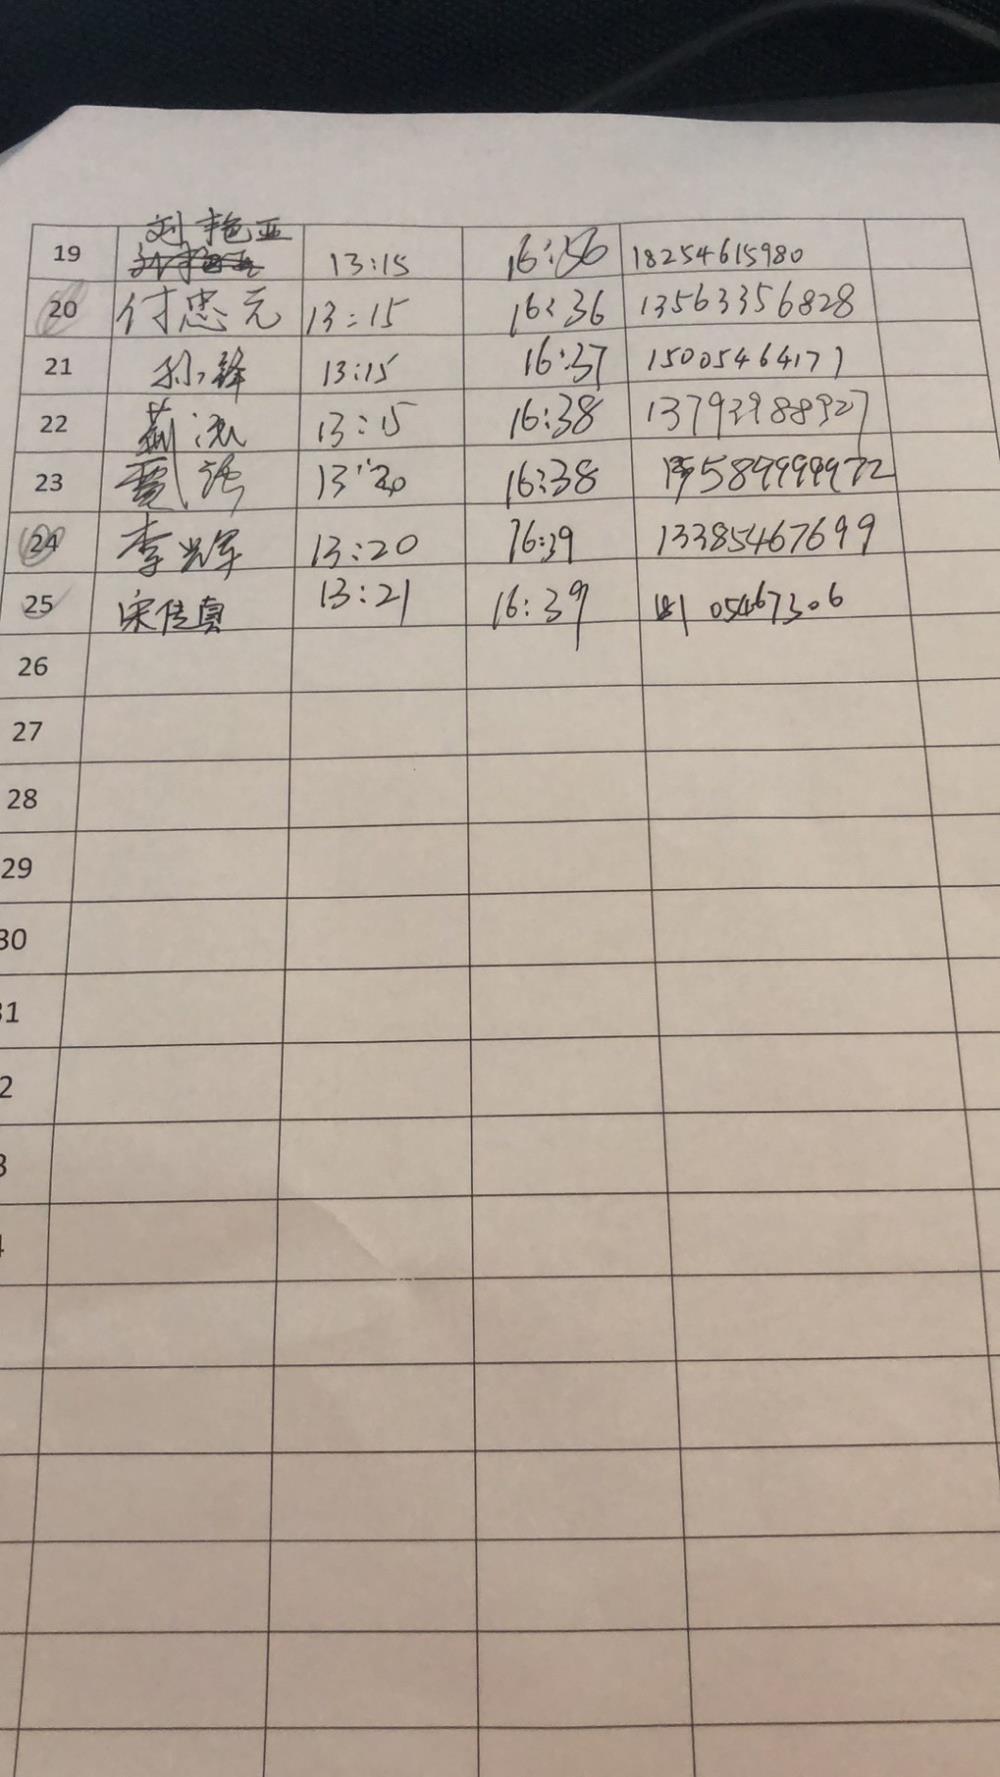 19 刘艳亚 13:15 16:36 18254615980
20 付忠元 13:15 16:36 13563356828
21 孙锋 13:15 16:37 15005464177
22 13:15 16:38 13793988927
23 13:20 16:38
24 李光军 13:20 16:39 13385467699
25 宋传真 13:21 16:39 05467306
26
27
28
29
30
31
2
3
4